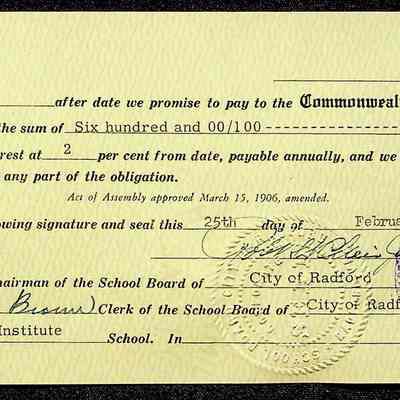 after date we promise to pay to the Commonweal
he sum of Six hundred and 00/100
rest at 2 per cent from date, payable annually, and we
any part of the obligation.
Act of Assembly approved March 15, 1906, amended.
owing signature and seal this 25th day of Februa
hairman of the School Board of City of Radford
Clerk of the School Board of City of Radf
Institute School. In